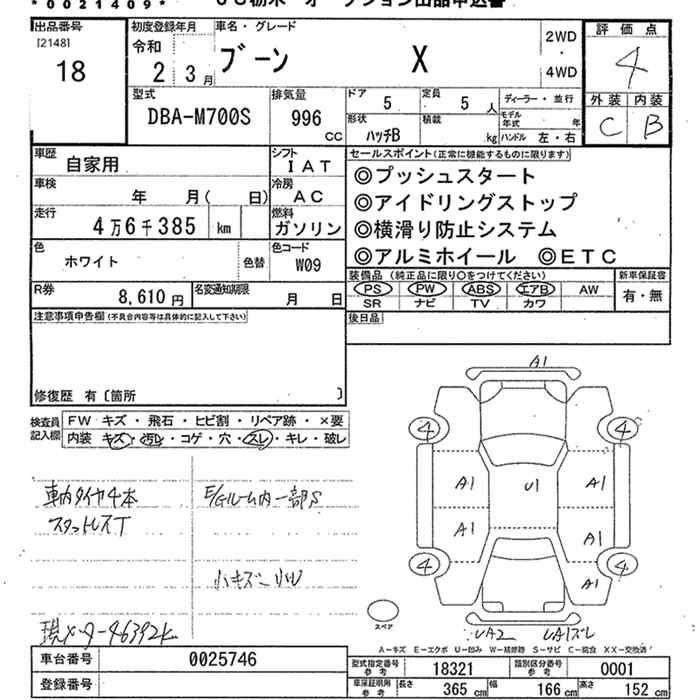 *0021409*
出品番号 [2148] 18
初度登録年月 令和 2 3月
車名・グレード ブーン X
2WD ・ 4WD
評価点 4
外装 C 内装 B
型式 DBA-M700S
排気量 996 CC
ドア 5 定員 5 人
形状 ハッチB 積載 kg
ディーラー・並行
モデル年式 年
ハンドル 左・右
車歴 自家用
シフト IAT
車検 年 月( 日)
冷房 AC
走行 4万6千385 km
燃料 ガソリン
色 ホワイト 色替
色コード W09
R券 8,610円
名変通知期限 月 日
セールスポイント(正常に機能するものに限ります)
◎プッシュスタート
◎アイドリングストップ
◎横滑り防止システム
◎アルミホイール ◎ETC
装備品(純正品に限り○をつけてください)
PS PW ABS エアB AW
SR ナビ TV カワ
新車保証書 有・無
後日品
注意事項申告欄(不具合内容等は具体的に記入して下さい)
修復歴 有〔箇所 〕
検査員記入欄
FW キズ・飛石・ヒビ割・リペア跡・×要
内装 キズ・汚レ・コゲ・穴・スレ・キレ・破レ
車内タイヤ4本
スタットレスT
E/Gルーム内一部S
小キズ
現メーター46392k
A1
4 4
A1 U1 A1
A1 A1
4 4
A1
UA2 UA1ズレ
スペア
A-キズ E-エクボ U-凹み W-補修跡 S-サビ C-腐食 XX-交換済
車台番号 0025746
登録番号
型式指定番号参考 18321 類別区分番号参考 0001
車庫証明用参考 長さ 365 cm 幅 166 cm 高さ 152 cm